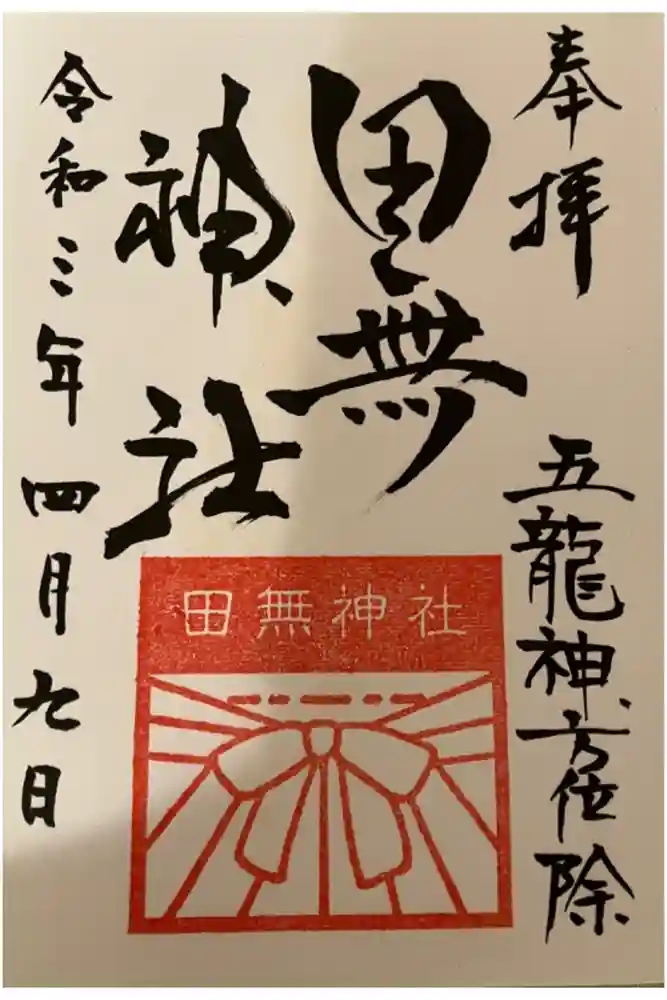 奉拝
五龍神方位除
田無
神社
令和三年四月九日
田無神社